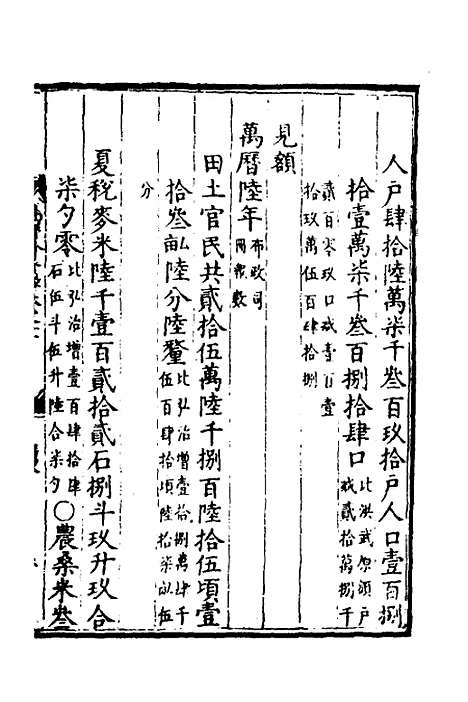 人户肆拾陸萬柒千叁百玖拾户人口壹百捌
拾壹萬柒千叁百捌拾肆口比洪武原額户
減貳拾萬捌千
貳百零玖口減壹百壹
拾玖萬伍百肆拾捌
見額
萬曆陸年布政司
開報數
田土官民共貳拾伍萬陸千捌百陸拾伍頃壹
拾叁畝陸分陸釐比弘治增壹拾捌萬肆千
伍百肆拾頃陸拾柒畝伍
分
夏稅麥米陸千壹百貳拾貳石捌斗玖升玖合
柒勺零比弘治增壹百肆拾肆
石伍斗伍升陸合柒勺○農桑米叁